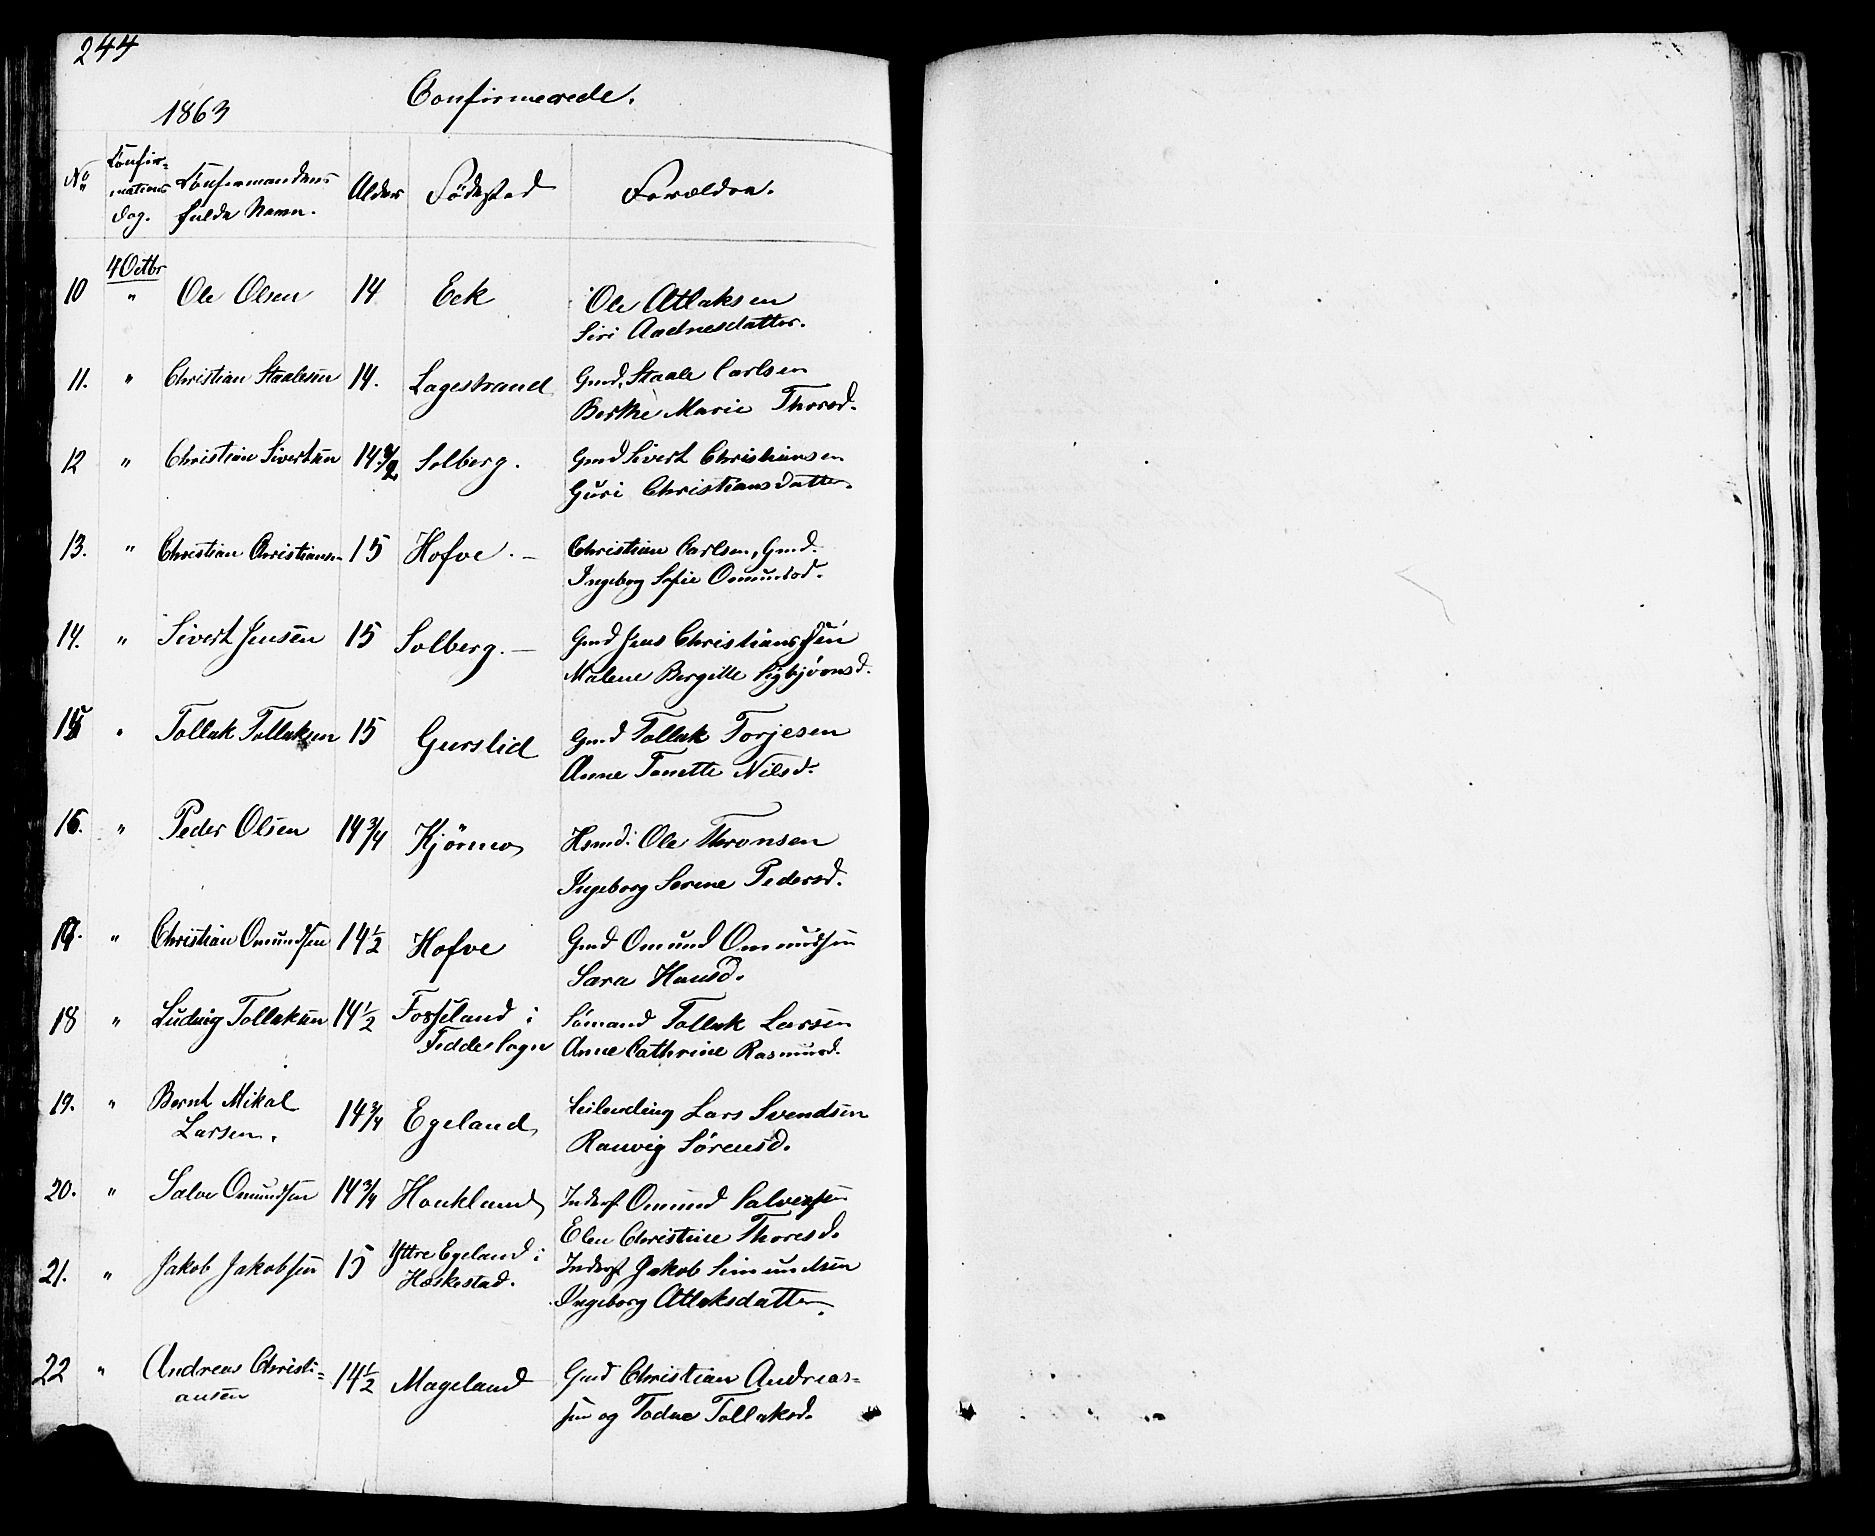 244
Confirmerede.
1863
No
Konfir-
mations
Dag.
Konfirmandens
fulde Navn.
Alder
Fødested
Forældre.
4 Octbr
10 " Ole Olsen 14 Eek Ole Atlaksen
Siri Aadnesdatter.
11. " Christian Staalesen 14. Lagestrand Gmd. Staale Carlsen
Berthe Marie Thorsd.
12 " Christian Sivertsen 14 Solberg. Gmd Sivert Christiansen
Guri Christiansdatter.
13. " Christian Christiansen 15 Hofve. — Christian Carlsen, Gmd.
Ingeborg Sofie Omundsd.
14. " Sivert Jensen 15 Solberg. — Gmd Jens Christianssen
Malene Bergitte Sigbjørnsd.
15 " Tollak Tollaksen 15 Gurslid Gmd Tollak Torjesen
Anne Tonette Nilsd.
16. " Peder Olsen 14 3/4 Kjörmo Hsmd. Ole Thronsen
Ingeborg Serene Pedersd.
17. " Christian Omundsen 14 1/2 Hofve Gmd Omund Omundsen
Sara Hansd.
18 " Ludvig Tollaksen 14 1/2 Fosseland i Sömand Tollak Larsen
Fedde Sogn Anne Cathrine Rasmusd.
19. " Bernt Mikal
Larsen. 14 3/4 Egeland Seilende Lars Svendsen
Ranvig Sörensd.
20. " Salve Omundsen 14 3/4 Houkland Inderst Omund Salvesen
Elen Christine Thoresd.
21. " Jakob Jakobsen 15 Yttre Egeland i Inderst Jakob Simundsen
Heskestad. Ingeborg Atlaksdatter.
22 " Andreas Christi-
ansen 14 1/2 Mageland Gmd Christian Andreas-
sen og Todne Tollaksd.